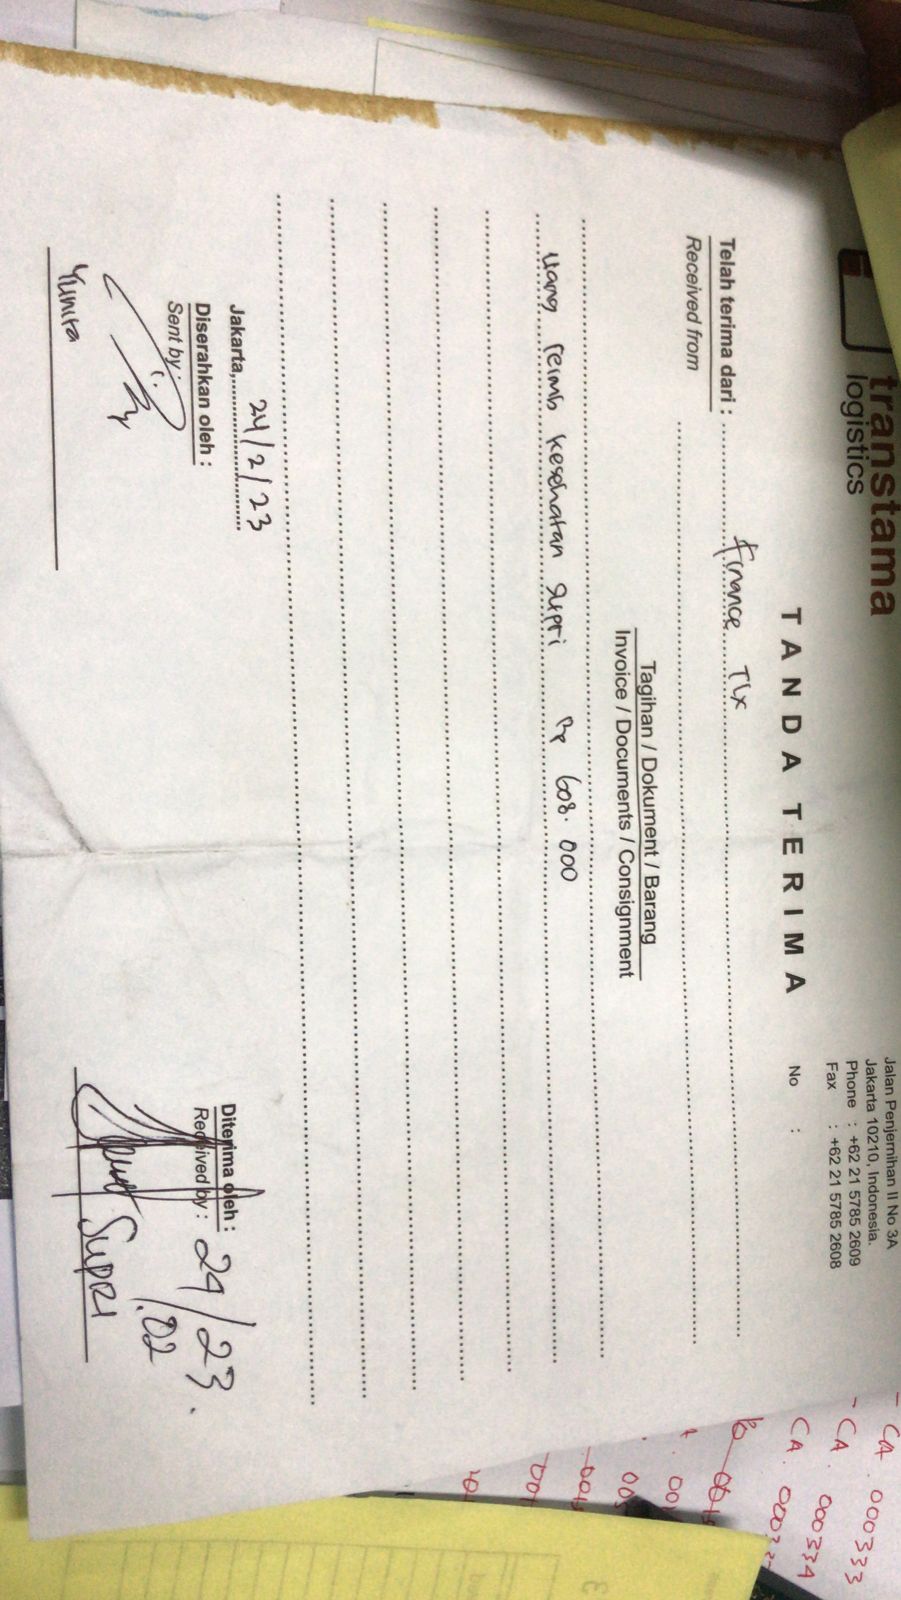 transtama
logistics
Jalan Penjernihan II No 3A
Jakarta 10210, Indonesia.
Phone : +62 21 5785 2609
Fax : +62 21 5785 2608
TANDA TERIMA
No :
Telah terima dari : Finance TLX
Received from
Tagihan / Dokument / Barang
Invoice / Documents / Consignment
uang reimb kesehatan supri Rp 608.000
Jakarta, 24/2/23
Diserahkan oleh :
Sent by :
Yunita
Diterima oleh :
Received by : 24/23.
.02
SUPRI
- CA . 000333
- CA . 000334
CA . 000